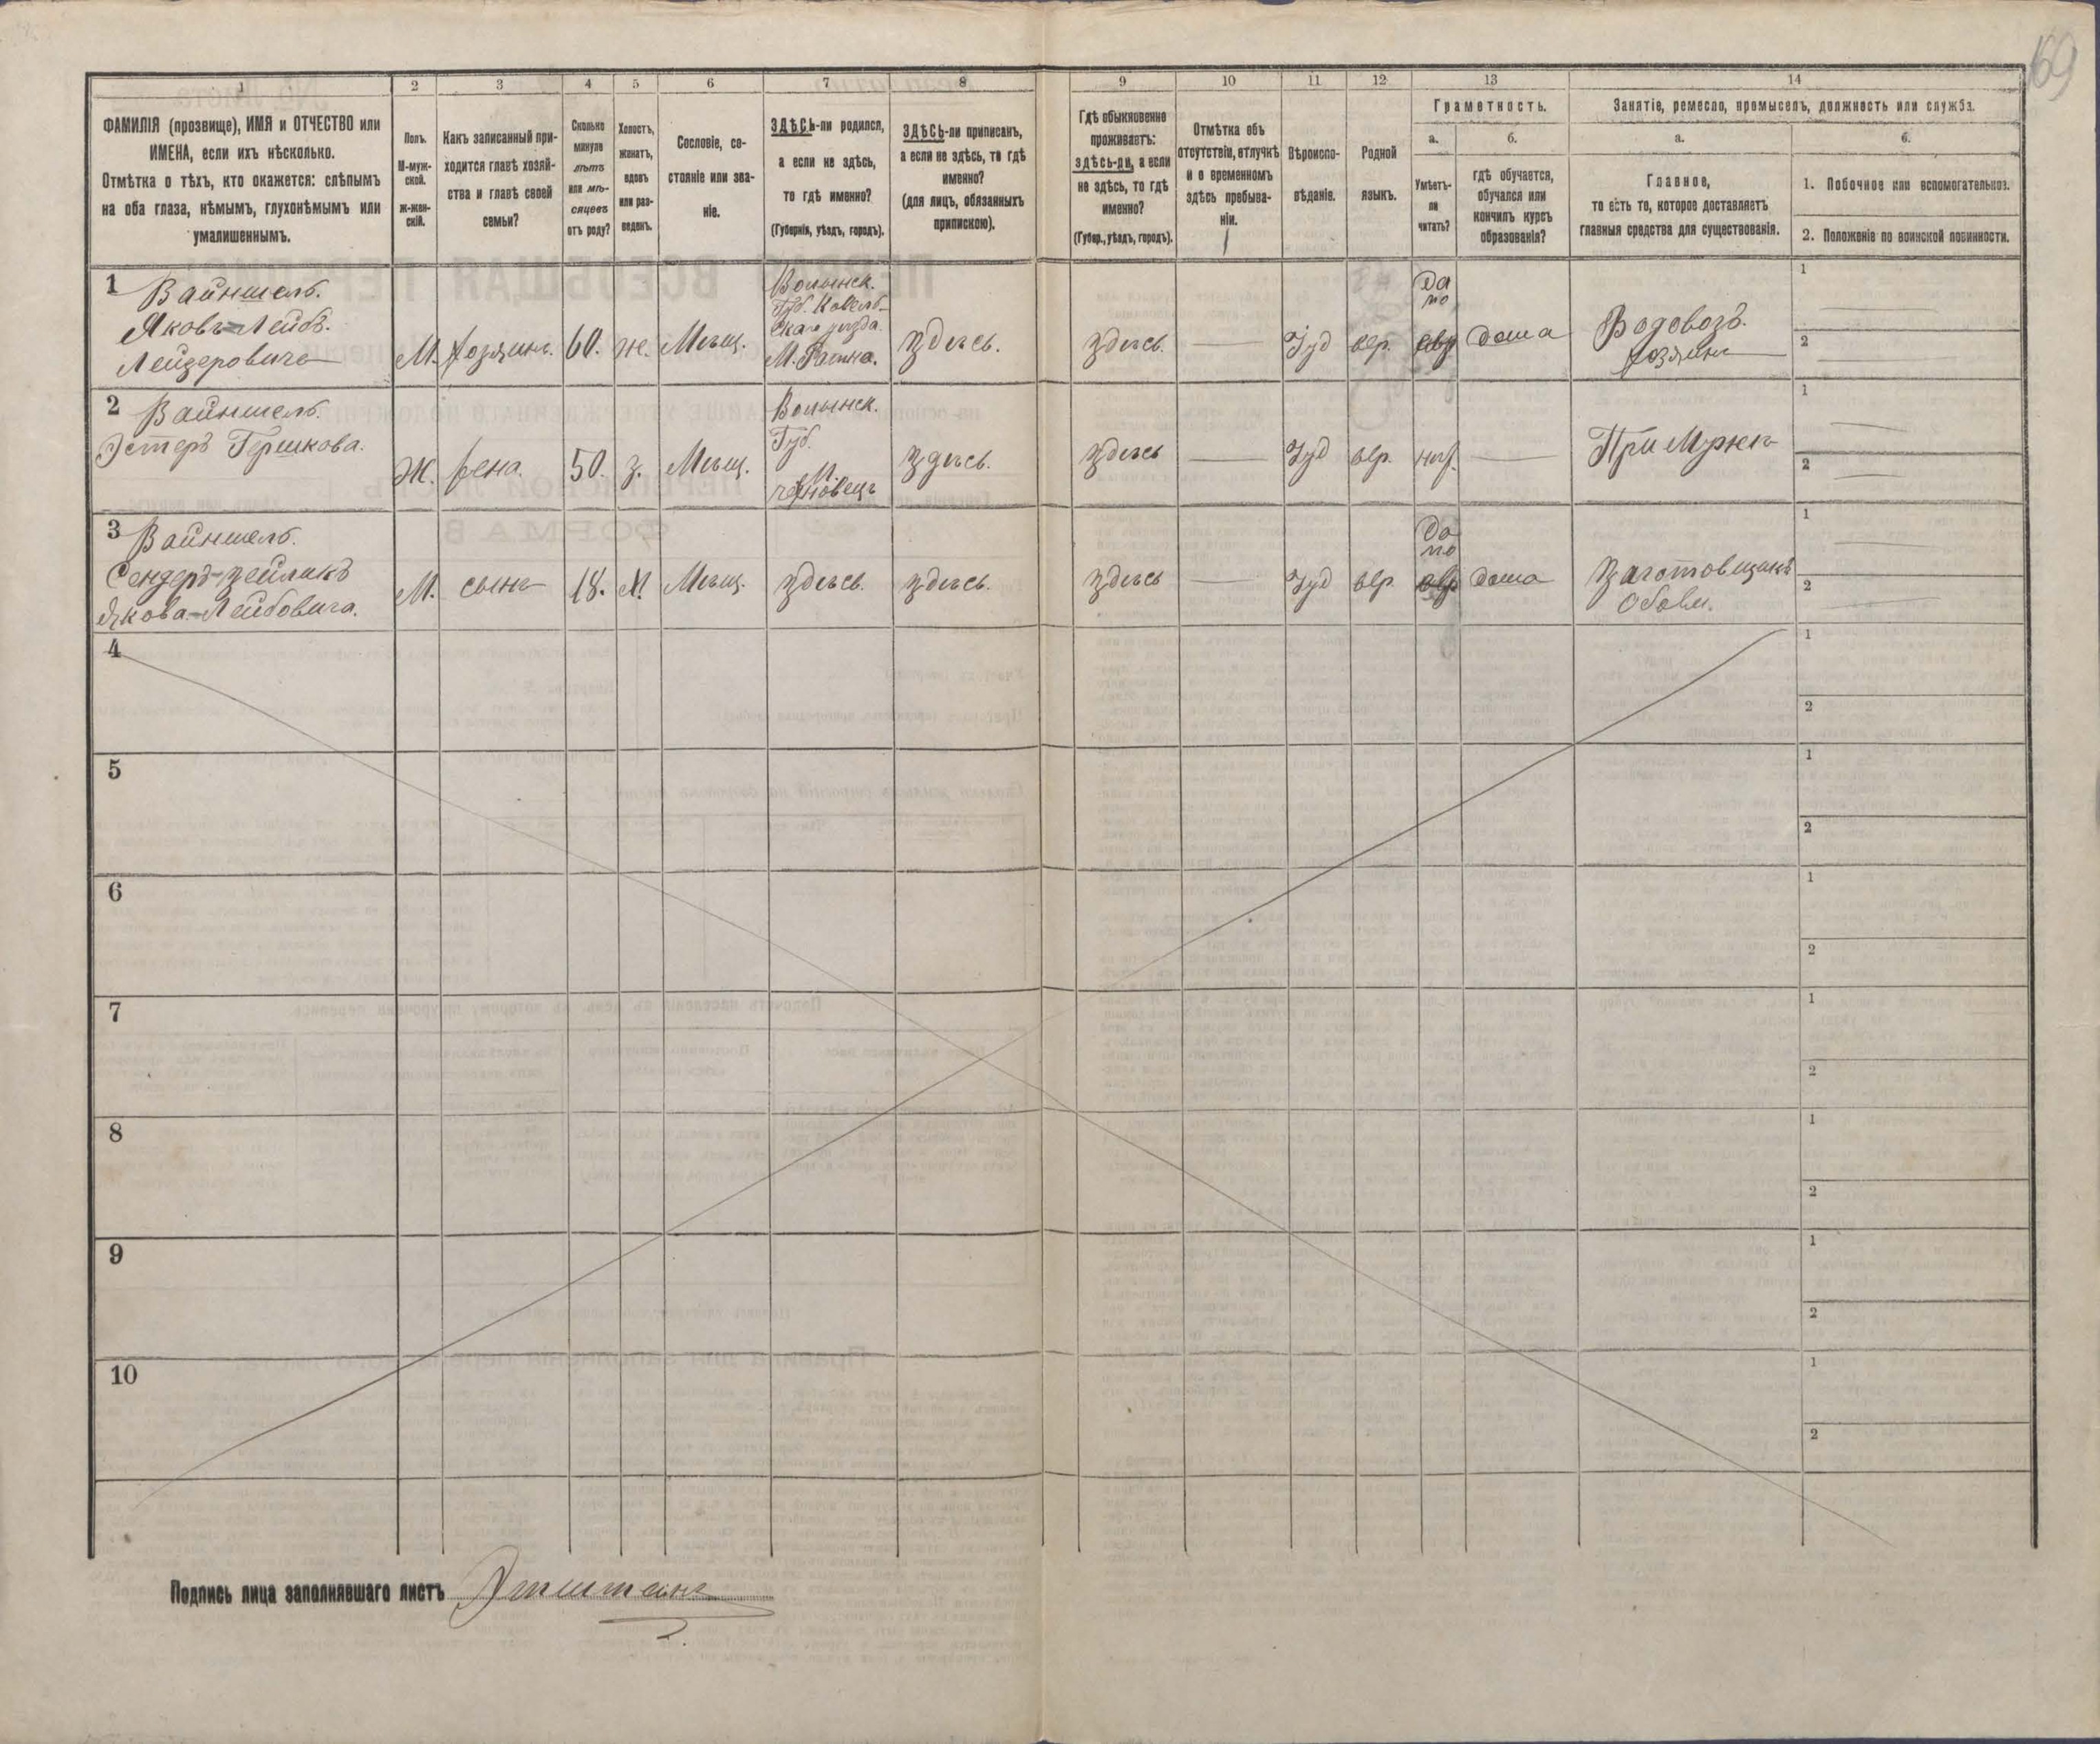 69
1
2
3
4
5
6
7
8
9
10
11
12
13
14
ФАМИЛІЯ (прозвище), ИМЯ и ОТЧЕСТВО или
ИМЕНА, если ихъ нѣсколько.
Отмѣтка о тѣхъ, кто окажется: слѣпымъ
на оба глаза, нѣмымъ, глухонѣмымъ или
умалишеннымъ.
Полъ.
М-муж-
ской.
Ж-жен-
скій.
Какъ записанный при-
ходится главѣ хозяй-
ства и главѣ своей
семьи?
Сколько
минуло
лѣтъ
или мѣ-
сяцевъ
отъ роду?
Холостъ,
женатъ,
вдовъ
или раз-
веденъ.
Сословіе, со-
стояніе или зва-
ніе.
ЗДѢСЬ-ли родился,
а если не здѣсь,
то гдѣ именно?
(Губернія, уѣздъ, городъ).
ЗДѢСЬ-ли приписанъ,
а если не здѣсь, то гдѣ
именно?
(для лицъ, обязанныхъ
припискою).
Гдѣ обыкновенно
проживаетъ:
здѣсь-ли, а если
не здѣсь, то гдѣ
именно?
(Губер., уѣздъ, городъ).
Отмѣтка объ
отсутствіи, отлучкѣ
и о временномъ
здѣсь пребыва-
ніи.
Вѣроиспо-
вѣданіе.
Родной
языкъ.
Грамотность.
а.
Умѣетъ-
ли
читать?
б.
гдѣ обучается,
обучался или
кончилъ курсъ
образованія?
Занятіе, ремесло, промыселъ, должность или служба.
а.
Главное,
то есть то, которое доставляетъ
главныя средства для существованія.
б.
1. Побочное или вспомогательное.
2. Положеніе по воинской повинности.
1
Вайншелъ.
Яковъ-Лейбъ.
Лейзеровичъ
М.
хозяинъ.
60.
ж.
Мѣщ.
Волынск.
Губ. Ковель-
скаго уѣзда.
М.
здѣсь.
здѣсь.
Іуд
евр.
Да
по
евр
дома
Водовозъ.
хозяинъ
1
2
2
Вайншелъ.
Эстеръ Гершкова.
Ж.
жена.
50.
з.
Мѣщ.
Волынск.
Губ.
М.
здѣсь.
здѣсь
Іуд
евр.
нѣт.
При Мужѣ
1
2
3
Вайншелъ.
Сендеръ-Зейликъ
Якова-Лейбовича.
М.
сынъ
18.
Х.
Мѣщ.
здѣсь.
здѣсь.
здѣсь
Іуд
евр.
Да
по
евр
дома
Заготовщикъ
Обови.
1
2
4
1
2
5
1
2
6
1
2
7
1
2
8
1
2
9
1
2
10
1
2
Подпись лица заполнявшаго листъ